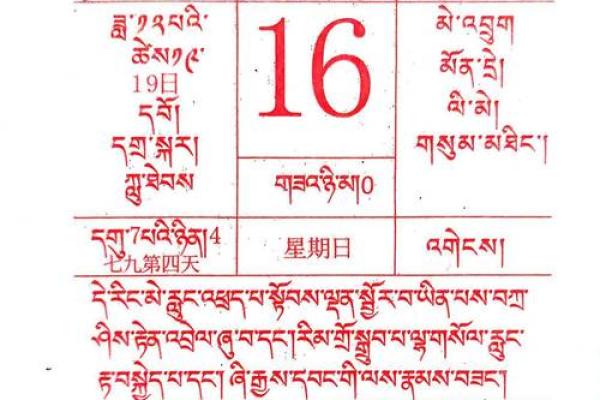 ཟླ་༡༢པའི་
ཚེས༡༩་
19日
དབོ།
དགྲ་སྐར།
ཀླུ་ཐེབས
16
གཟའ་ཉི་མ།0
མེ་འབྲུག
མོན་དྲེ།
ལི་མེ།
གསུམ་མཐིང་།
དགུ་7པའི་ཉིན།4
七九第四天
星期日
འགེངས།
དེ་རིང་མེ་རླུང་འཕྲད་པ་སྟོབས་ལྡན་སྦྱོར་བ་ཡིན་པས་བཀྲ་
ཤིས་རྟེན་འབྲེལ་ཞུ་བ་དང་།རིམ་གྲོ་སྒྲུབ་པ་ལྷ་གསོལ་རླུང་
རྟ་བསྐྱེད་པ་དང་། ཞི་རྒྱས་དབང་གི་ལས་རྣམས་བཟང་།